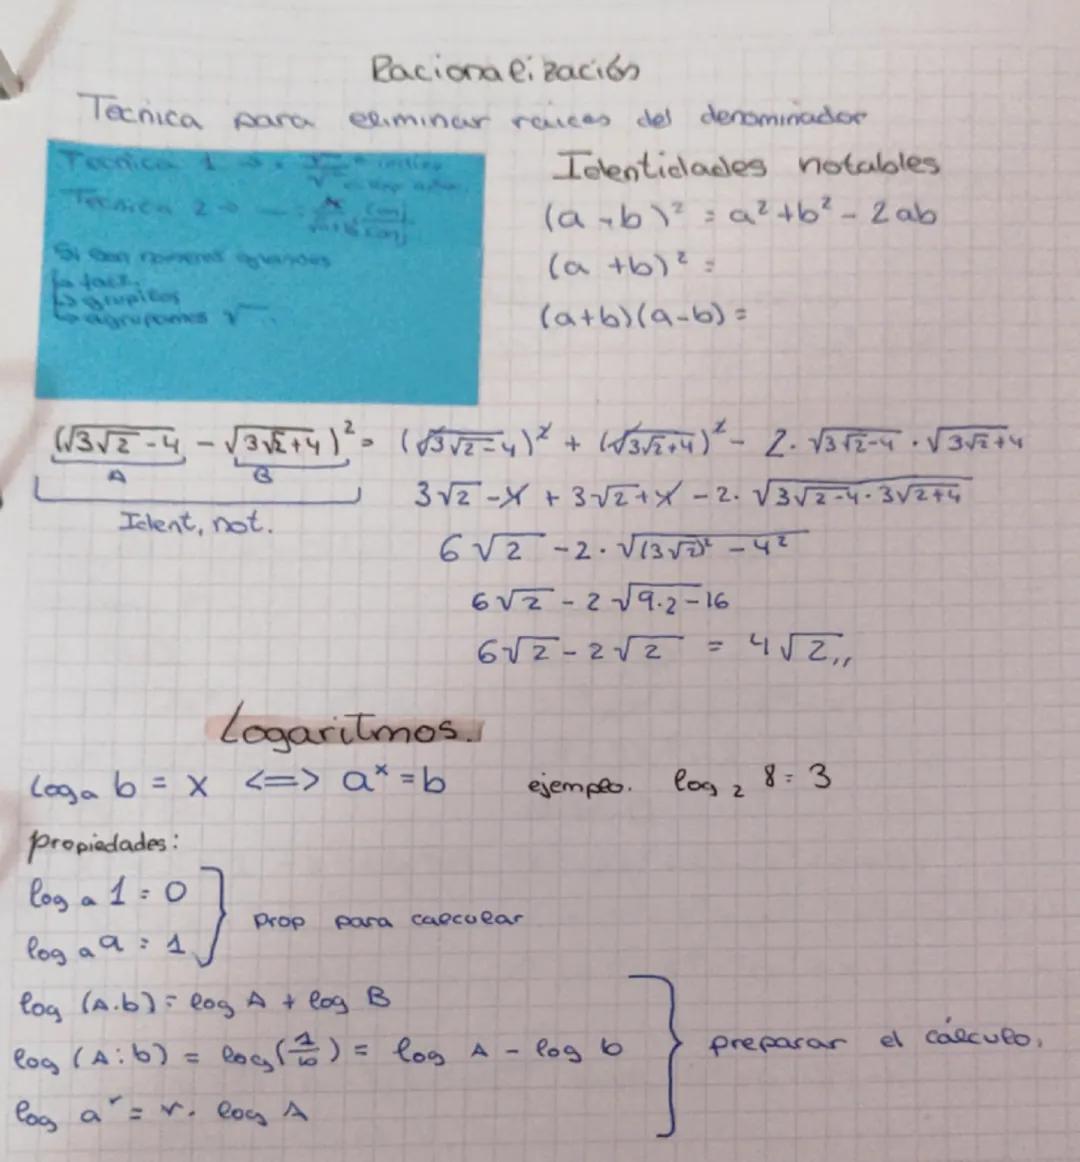 Racionalización
Tecnica para eliminar raices del denominador
Tecnica 1 →
Tecnica 2 →
Si son numeros grandes
↳ fact.
↳ grupitos
↳ agrupamos √
Identidades notables
(a-b)² = a²+b² - 2ab
(a+b)² =
(a+b)(a-b) =
(√3√2-4 - √3√2+4)² = (√3√2-4)² + (√3√2+4)² - 2·√3√2-4 · √3√2+4
A B
Ident, not.
3√2 - 4 + 3√2 + 4 - 2·√3√2-4·3√2+4
6√2 - 2·√(3√2)² - 4²
6√2 - 2√9·2-16
6√2 - 2√2 = 4√2,,
Logaritmos.
Loga b = x <=> aˣ = b ejemplo. log₂ 8 = 3
propiedades:
log a 1 = 0
log a a = 1
prop para calcular
log (A.b) = log A + log B
log (A:b) = log(1/10) = log A - log b
log aʳ = r. log A
preparar el cálculo.